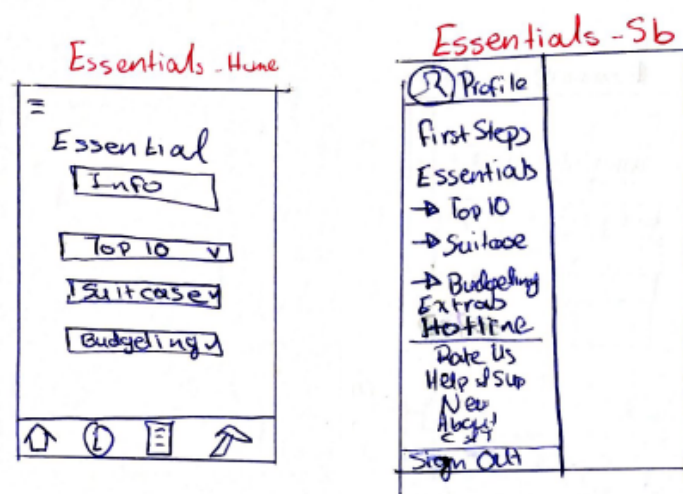 Essentials - Home
Essential
Info
Top 10 v
Suitcase v
Budgeting v
i
Essentials - Sb
Profile
First Steps
Essentials
→ Top 10
→ Suitcase
→ Budgeting
Extras
Hotline
Rate Us
Help & Sup
New
About
Sign Out